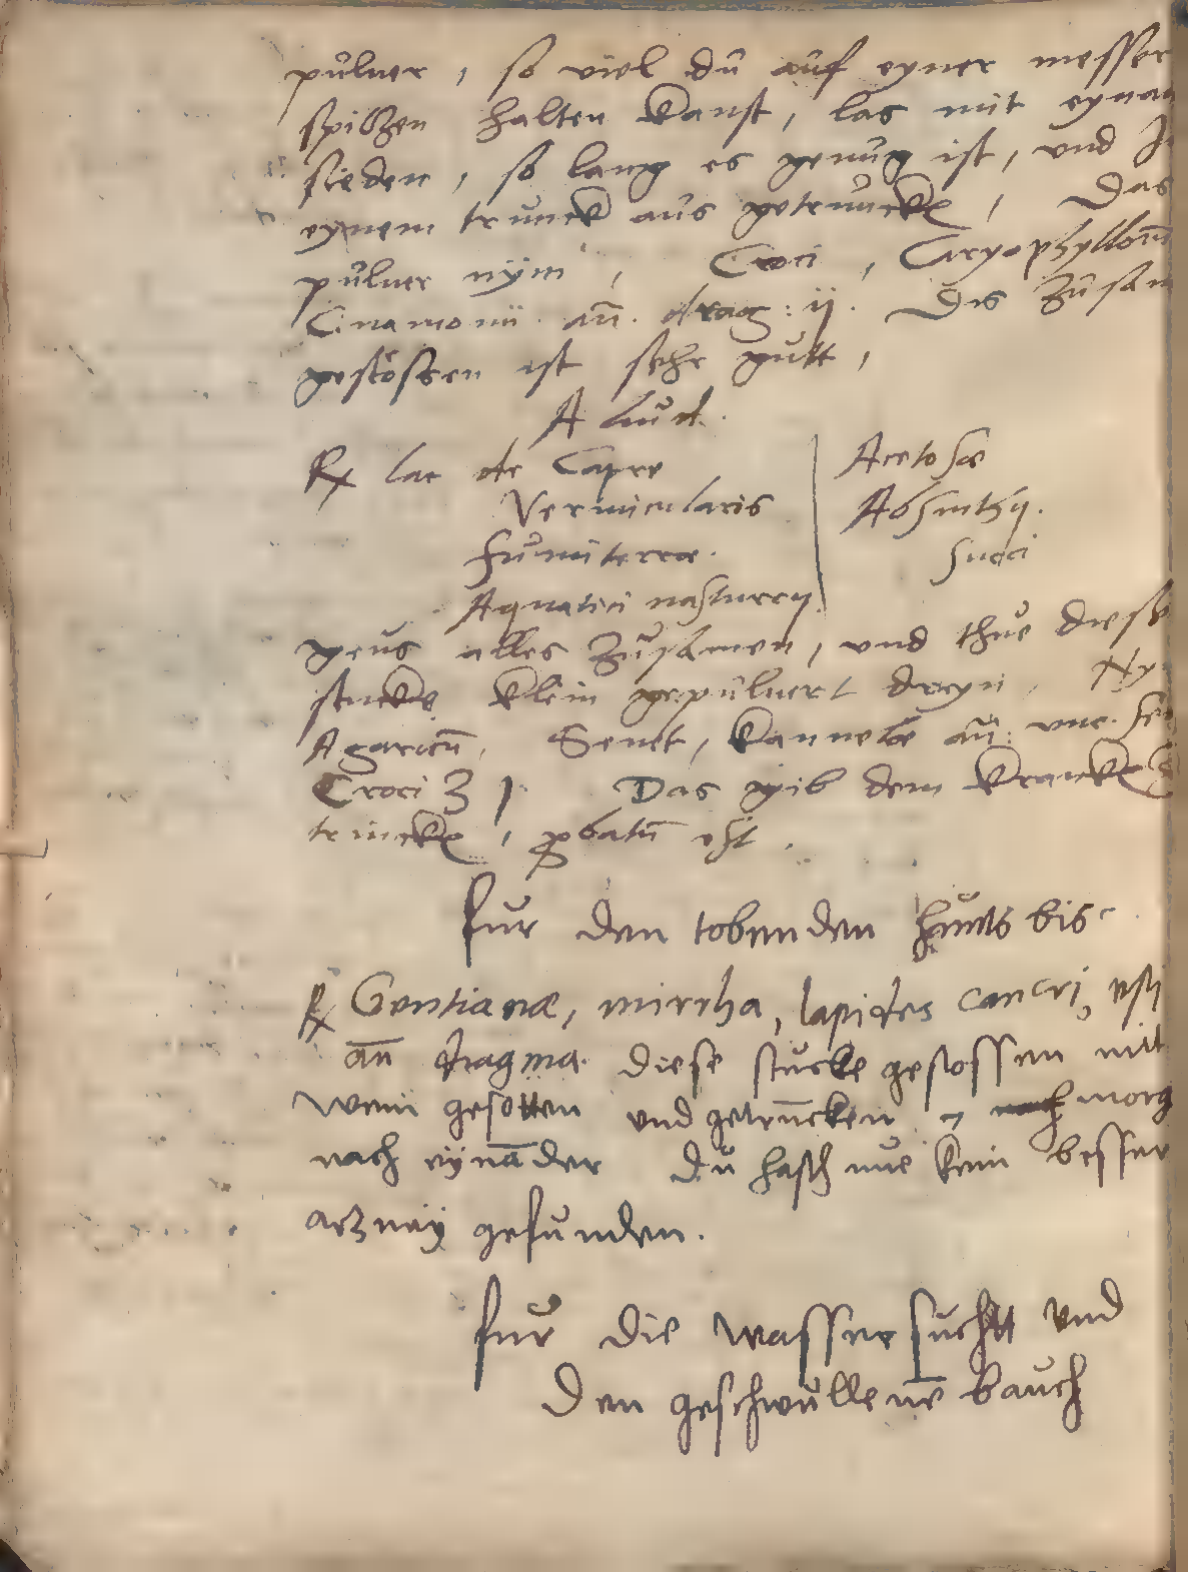 pulver, so viel du auf eyner messer
spitzen halten kanst, las mit eynan
sieden, so lang es genug ist, und In
eynem trunck aus getruncke, Das
pulver nÿm, Croci, Caryophyllorū
Cinamomii an̄. drag: ij. Dis zusam
gestossen ist sehr gutt,
Aliud.
℞ lac de Capre | Acetosæ
Vermicularis | Absinthij.
fumiterræ. | succi
Aquatici nasturcij.
geus alles zusamen, und thue diese
stucke klein gepulvert dreyn, Ny
Agaricū, Senet, kannelæ an̄: unc. se
Croci ʒ j. Das gib dem krancke
trincke, ꝓbatū est.
fur den tobenden hunts bis
℞ Gentianæ, mirrha, lapides cancri, usti
an̄ dragma. diese stucke gestossen mit
wein gesotten und getruncken 9 morg
nach eynāder du hasth nue kein besser
artzney gefunden.
fur die wassersuchtt und
den geschwullenē bauch